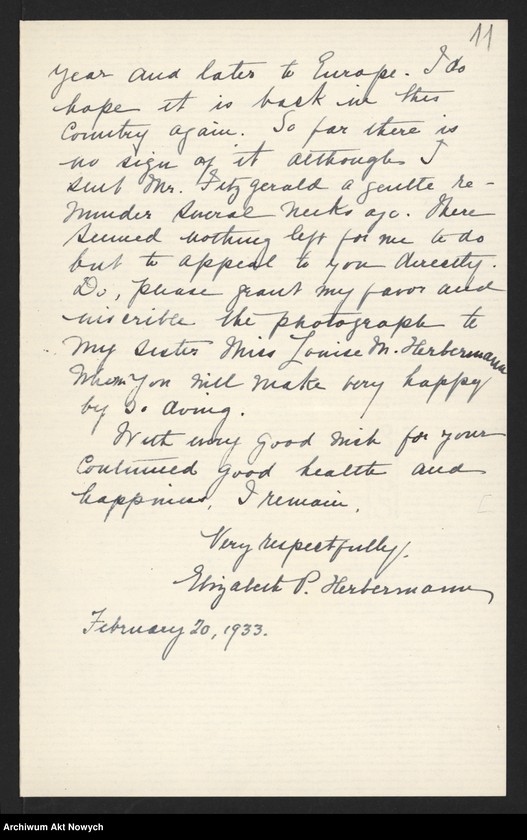 11
year and later to Europe. I do
hope it is back in this
Country again. So far there is
no sign of it although I
sent Mr. Fitzgerald a gentle re-
minder several weeks ago. There
seemed nothing left for me to do
but to appeal to you directly.
Do, please grant my favor and
inscribe the photograph to
my sister Miss Louise M. Herbermann
whom you will make very happy
by so doing.
With every good wish for your
continued good health and
happiness, I remain,
Very respectfully,
Elizabeth P. Herbermann
February 20, 1933.
Archiwum Akt Nowych